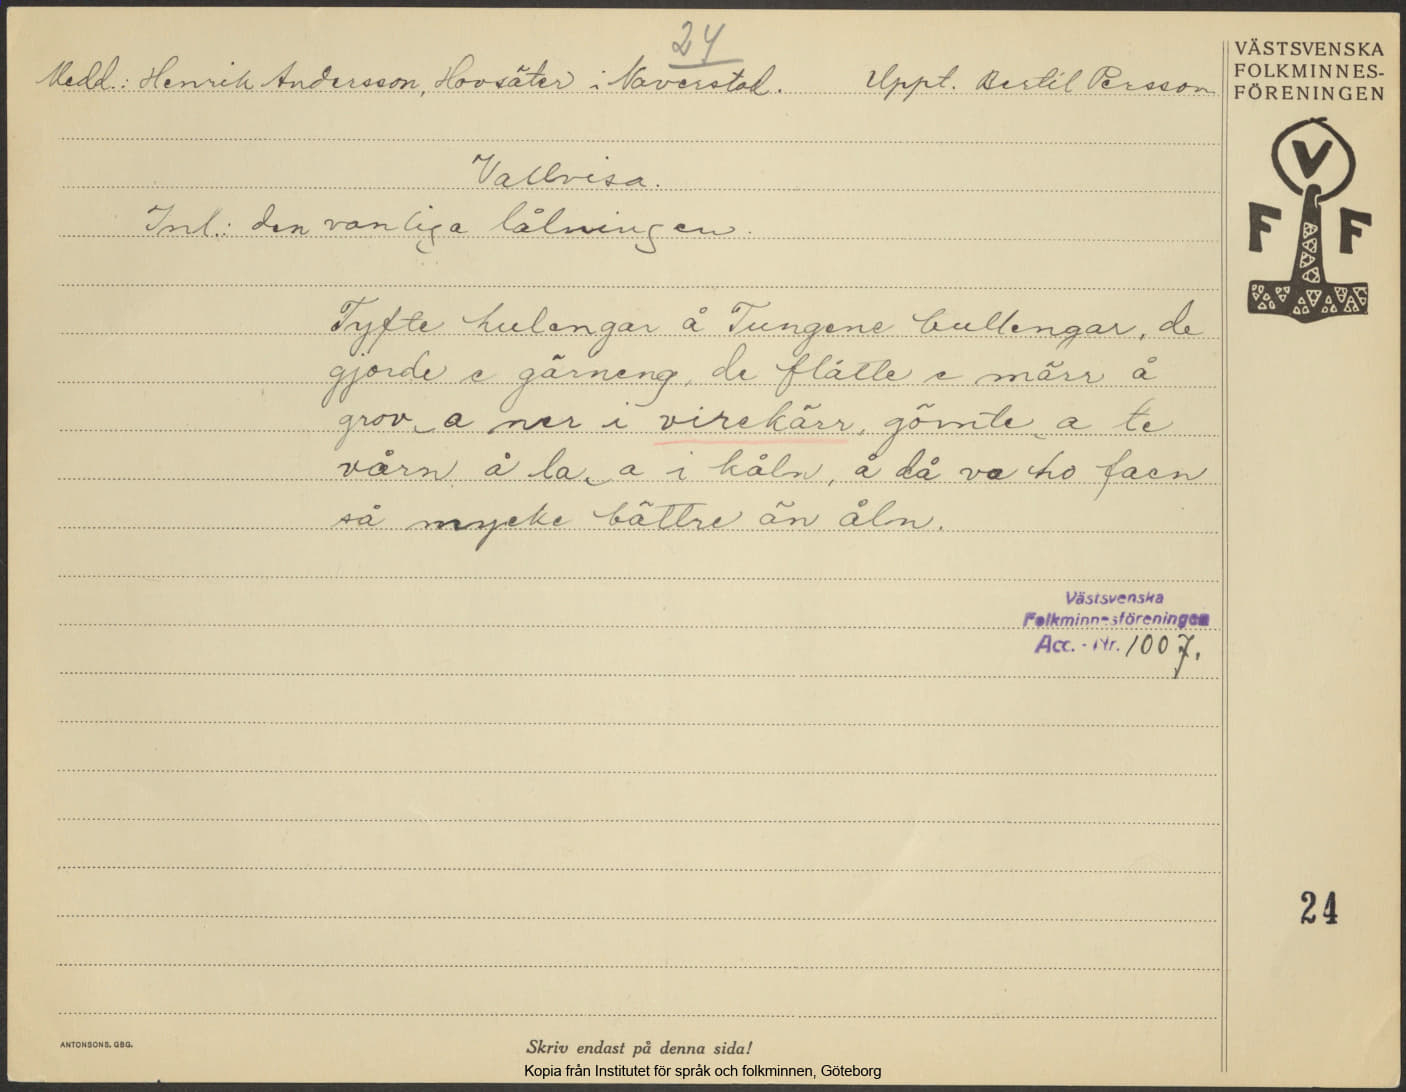 24
Medd.: Henrik Andersson, Hovsäter i Naverstad. Uppt. Bertil Persson
VÄSTSVENSKA
FOLKMINNES-
FÖRENINGEN
V
F F
Vallvisa.
Inl.: den vanliga låtningen.
Tyfte hulengar å Tungene bullengar, de
gjorde e gärneng, de flåtte e märr å
grov a ner i virekärr, gömte a te
vårn å la a i kåln, å då va ho faen
så mycke bättre än åln.
Västsvenska
Folkminnesföreningen
Acc. - Nr. 1007.
24
ANTONSONS. GBG.
Skriv endast på denna sida!
Kopia från Institutet för språk och folkminnen, Göteborg